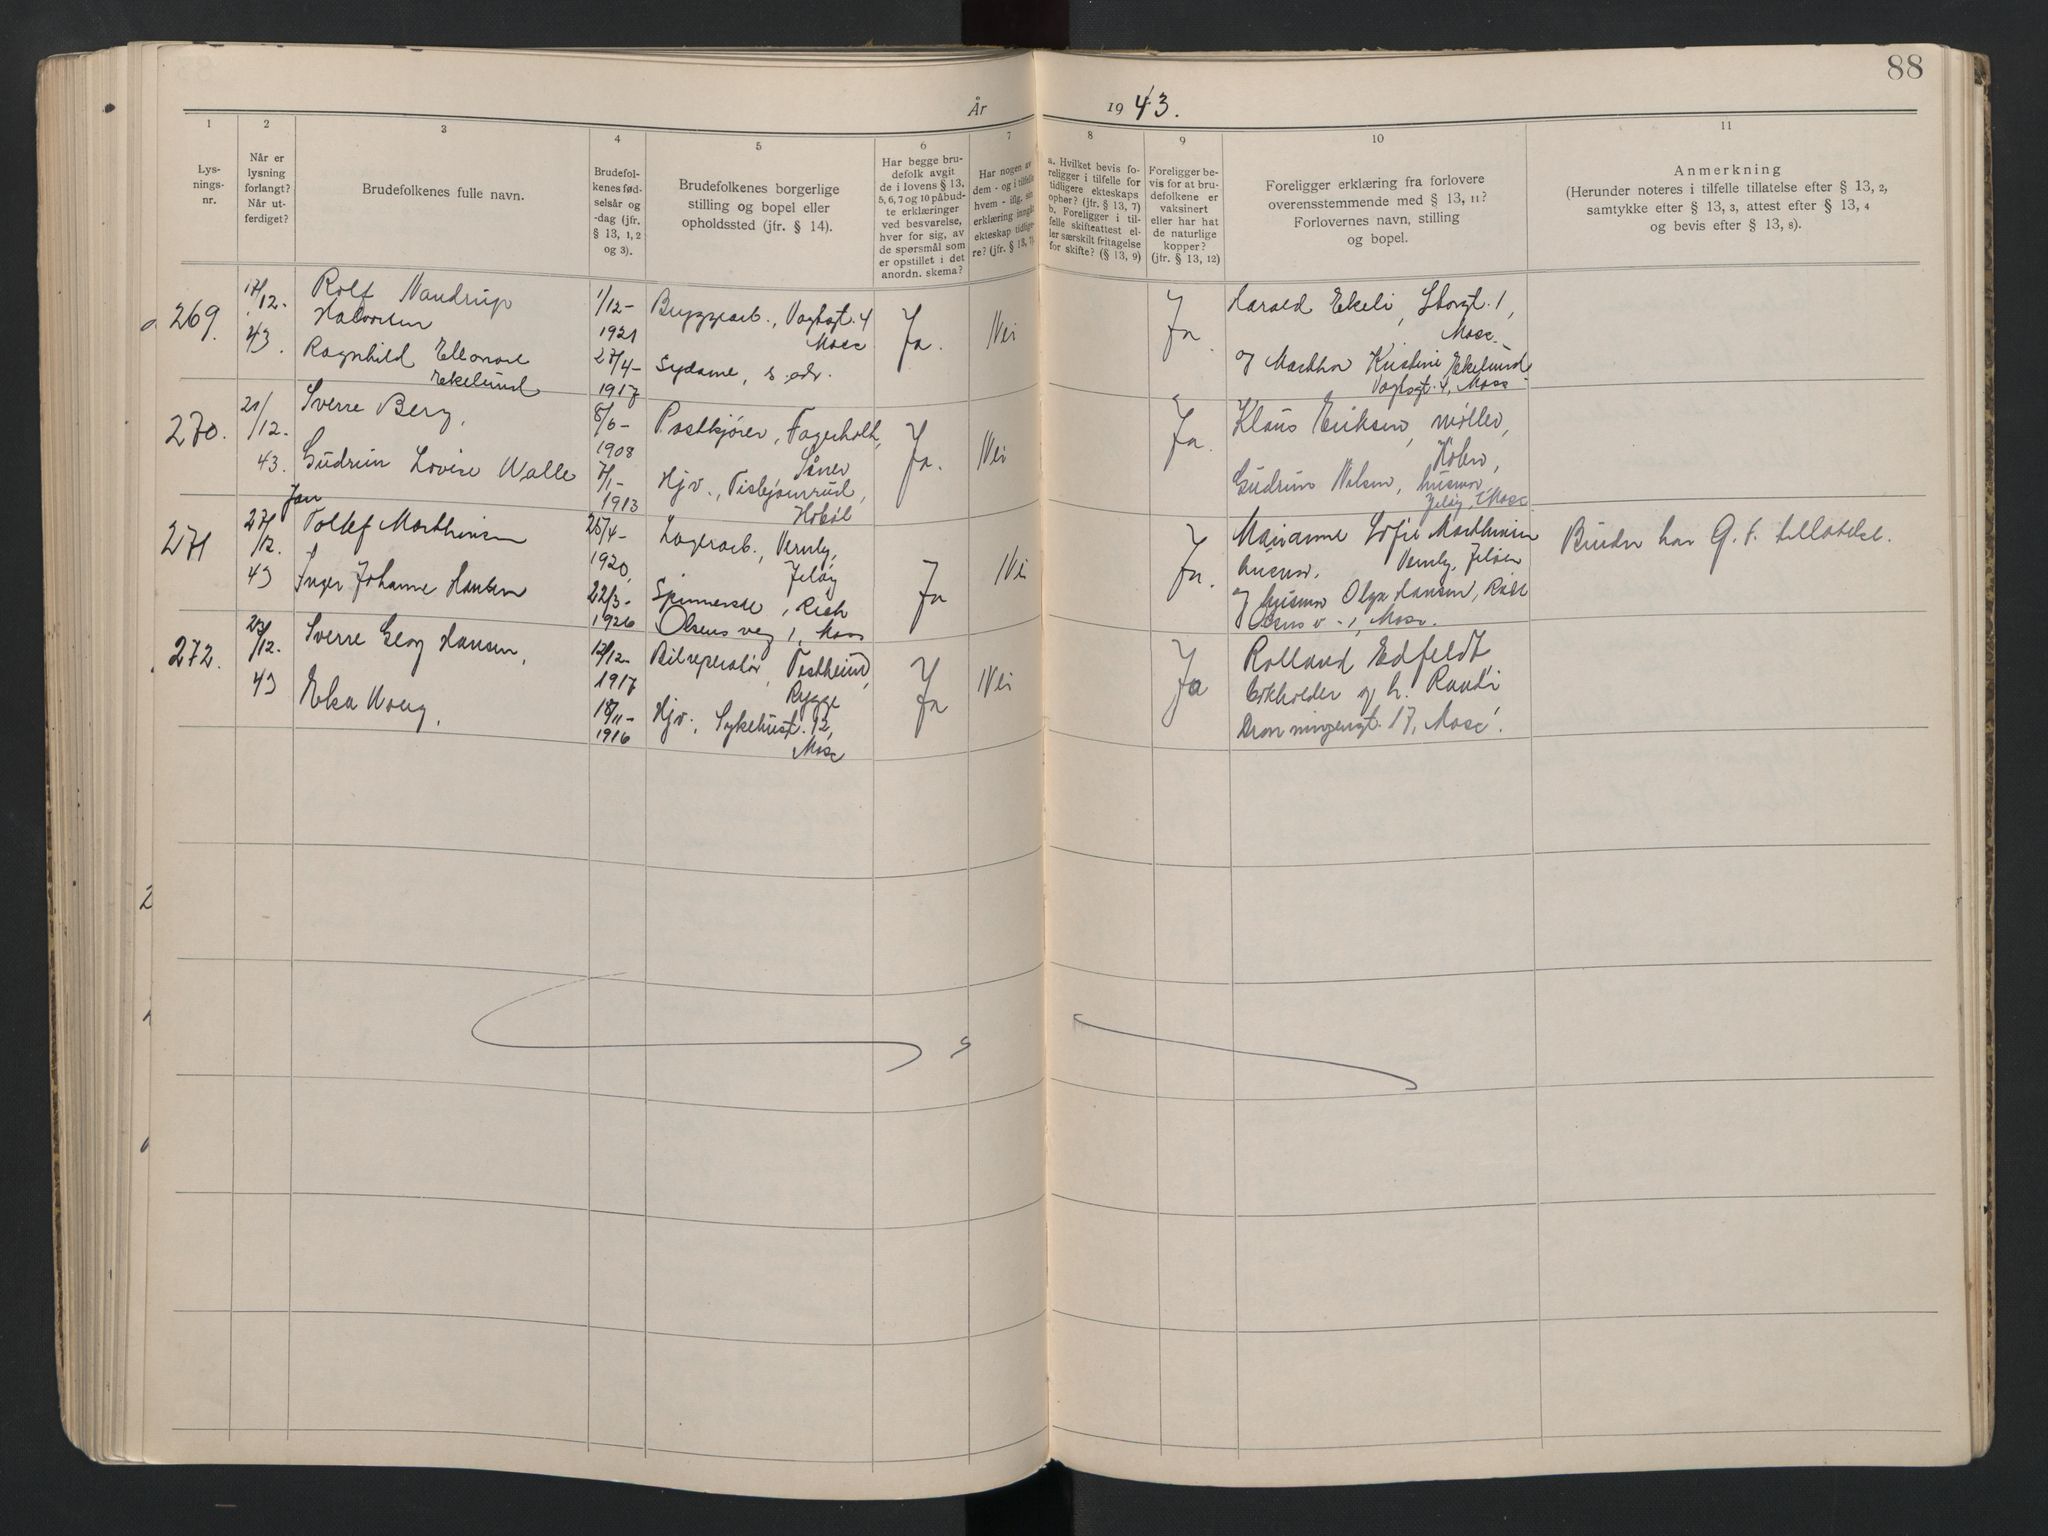 88
År 1943.
1 2 3 4 5 6 7 8 9 10 11
Lys-
nings-
nr.
Når er
lysning
forlangt?
Når ut-
ferdiget?
Brudefolkenes fulle navn.
Brudefol-
kenes fød-
selsår og
-dag (jfr.
§ 13, 1, 2
og 3).
Brudefolkenes borgerlige
stilling og bopel eller
opholdssted (jfr. § 14).
Har begge bru-
defolk avgit
de i lovens § 13,
5, 6, 7 og 10 påbud-
te erklæringer
ved besvarelse,
hver for sig, av
de spørsmål som
er opstillet i det
anordn. skema?
Har nogen av
dem - og i tilfelle
hvem - iflg. sin
erklæring inngått
ekteskap tidlige-
re? (jfr. § 13, 7).
a. Hvilket bevis fo-
religger i tilfelle for
tidligere ekteskaps
ophør? (jfr. § 13, 7)
b. Foreligger i til-
felle skifteattest el-
ler særskilt fritagelse
for skifte? (§ 13, 9)
Foreligger be-
vis for at bru-
defolkene er
vaksinert
eller har hat
de naturlige
kopper?
(jfr. § 13, 12)
Foreligger erklæring fra forlovere
overensstemmende med § 13, 11?
Forlovernes navn, stilling
og bopel.
Anmerkning
(Herunder noteres i tilfelle tillatelse efter § 13, 2,
samtykke efter § 13, 3, attest efter § 13, 4
og bevis efter § 13, 8).
269.
17/12-
43.
Rolf Nandrup
Halvorsen
Ragnhild Elleonore
Ekelund
1/12-
1921
27/4-
1917
Bryggearb., Vogtsgt. 4
Moss
Sydame, s. adr.
Ja.
Nei
Ja.
Harald Ekeli, Storgt. 1,
Moss.
og Marthe Kristine Ekelund
Vogtsgt. 4, Moss
270.
21/12.
43.
Sverre Berg,
Gudrun Lovise Walle
8/6-
1908
7/1-
1913
Postkjører, Fagerholt,
Såner
Hjv.,
Hobøl
Ja.
Nei
Ja.
Klaus Eriksen, møller,
Hobøl,
Gudrun Nilsen, husmor,
Jeløy, Moss
271
27/12.
43
Jan
Tollef Marthinsen
Inger Johanne Hansen
25/4-
1920,
22/3-
1926
Lagerarb., Vernly,
Jeløy
Spinnerske, Rich
Olsens veg 1, Moss
Ja
Nei
Ja.
Marianne Sofie Marthinsen
husmor, Vernly, Jeløen
og husmor Olga Hansen, Rich
Olsens v. 1, Moss.
Bruden har G. f. tillatelse.
272.
28/12.
43
Sverre Georg Hansen,
Elsa Haug,
12/12-
1917
18/11-
1916
Bilreperatør, Festheim,
Rygge
Hjv. Sykehusgt. 12,
Moss
Ja
Nei
Ja
Rolland Edfeldt
bokholder og h. Randi
Dronningensgt. 17, Moss.